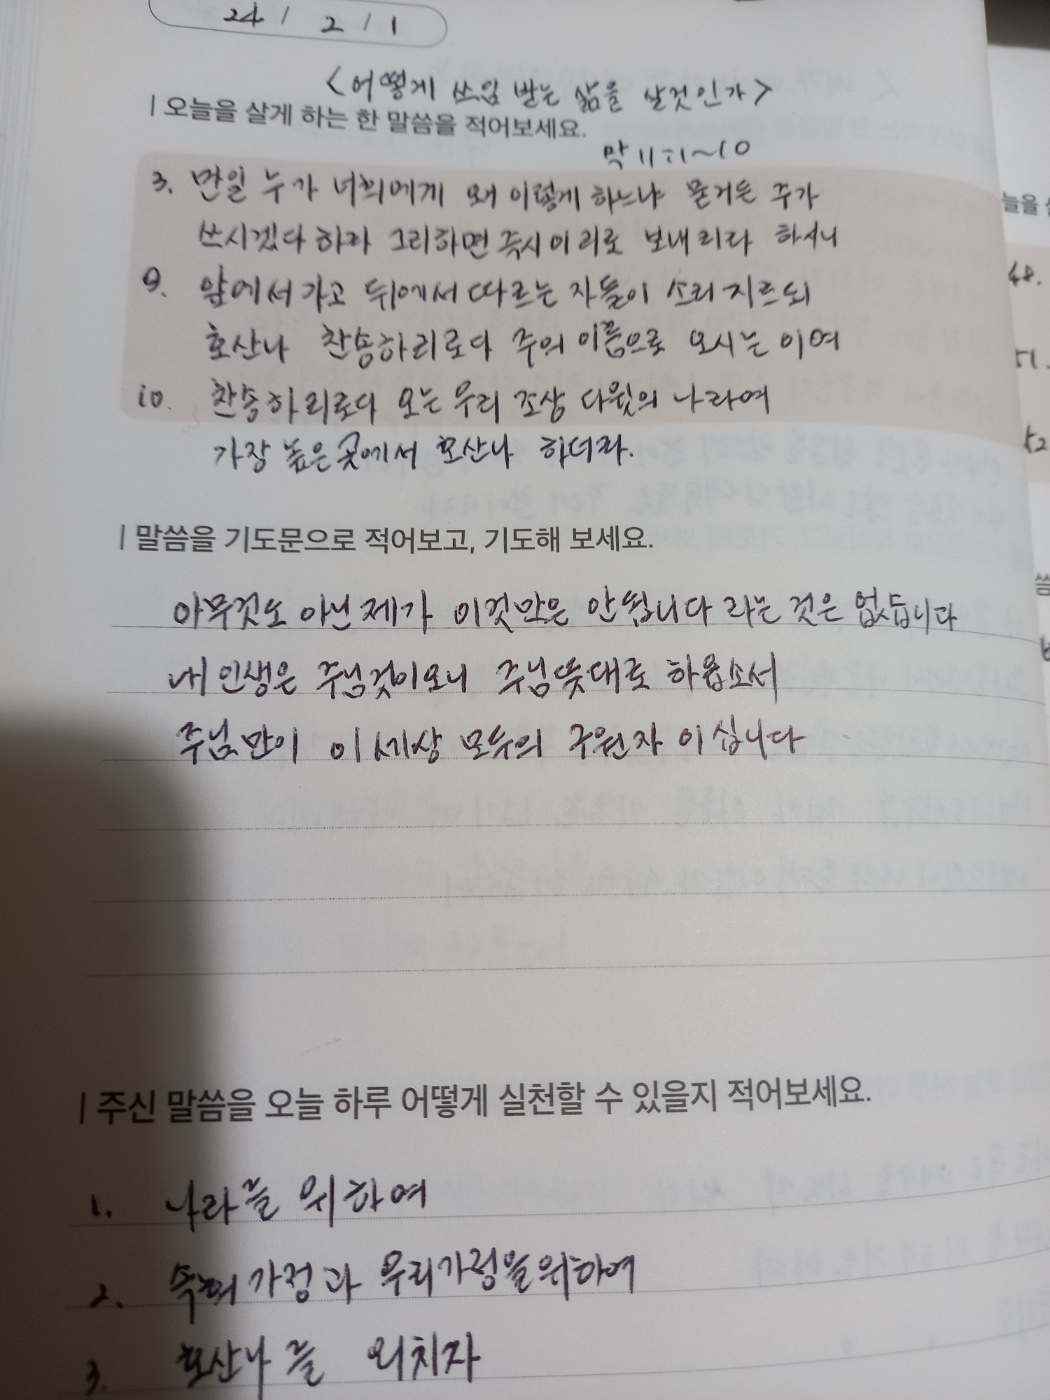 24 / 2 / 1
<어떻게 쓰임 받는 삶을 살것인가>
| 오늘을 살게 하는 한 말씀을 적어보세요.
막 11:1~10
3. 만일 누가 너희에게 왜 이렇게 하느냐 묻거든 주가
쓰시겠다 하라 그리하면 즉시 이리로 보내리라 하시니
9. 앞에서 가고 뒤에서 따르는 자들이 소리 지르되
호산나 찬송하리로다 주의 이름으로 오시는 이여
10. 찬송하리로다 오는 우리 조상 다윗의 나라여
가장 높은 곳에서 호산나 하더라.
| 말씀을 기도문으로 적어보고, 기도해 보세요.
아무것도 아닌 제가 이것만은 안됩니다 라는 것은 없습니다
내 인생은 주님것이오니 주님뜻대로 하옵소서
주님만이 이 세상 모두의 구원자 이십니다
| 주신 말씀을 오늘 하루 어떻게 실천할 수 있을지 적어보세요.
1. 나라를 위하여
2. 가정과 우리가정을위하여
3. 호산나를 외치자
늘을
48.
51.
52